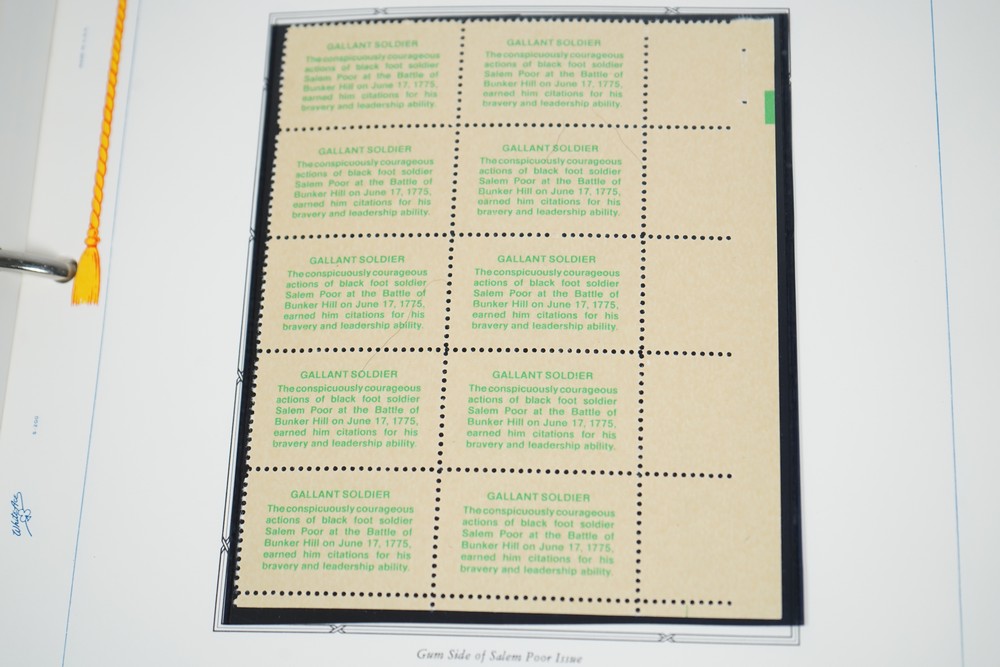 GALLANT SOLDIER
The conspicuously courageous
actions of black foot soldier
Salem Poor at the Battle of
Bunker Hill on June 17, 1775,
earned him citations for his
bravery and leadership ability.
GALLANT SOLDIER
The conspicuously courageous
actions of black foot soldier
Salem Poor at the Battle of
Bunker Hill on June 17, 1775,
earned him citations for his
bravery and leadership ability.
GALLANT SOLDIER
The conspicuously courageous
actions of black foot soldier
Salem Poor at the Battle of
Bunker Hill on June 17, 1775,
earned him citations for his
bravery and leadership ability.
GALLANT SOLDIER
The conspicuously courageous
actions of black foot soldier
Salem Poor at the Battle of
Bunker Hill on June 17, 1775,
earned him citations for his
bravery and leadership ability.
GALLANT SOLDIER
The conspicuously courageous
actions of black foot soldier
Salem Poor at the Battle of
Bunker Hill on June 17, 1775,
earned him citations for his
bravery and leadership ability.
GALLANT SOLDIER
The conspicuously courageous
actions of black foot soldier
Salem Poor at the Battle of
Bunker Hill on June 17, 1775,
earned him citations for his
bravery and leadership ability.
GALLANT SOLDIER
The conspicuously courageous
actions of black foot soldier
Salem Poor at the Battle of
Bunker Hill on June 17, 1775,
earned him citations for his
bravery and leadership ability.
GALLANT SOLDIER
The conspicuously courageous
actions of black foot soldier
Salem Poor at the Battle of
Bunker Hill on June 17, 1775,
earned him citations for his
bravery and leadership ability.
GALLANT SOLDIER
The conspicuously courageous
actions of black foot soldier
Salem Poor at the Battle of
Bunker Hill on June 17, 1775,
earned him citations for his
bravery and leadership ability.
GALLANT SOLDIER
The conspicuously courageous
actions of black foot soldier
Salem Poor at the Battle of
Bunker Hill on June 17, 1775,
earned him citations for his
bravery and leadership ability.
Gum Side of Salem Poor Issue